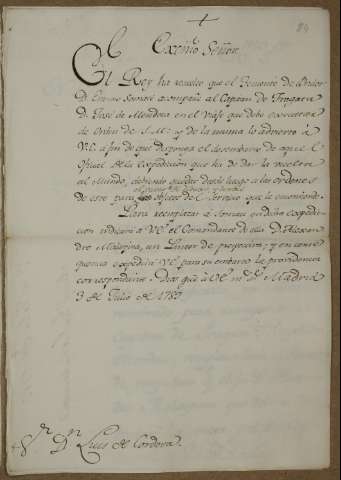 84
Exc.mo Señor
El Rey ha resuelto que el Teniente de Navio
D.
acompañe al Capitan de Fragata
D. José de Mendoza en el viaje que debe executar
de orden de S. M. y de la misma lo advierto á
V. E. a fin de que disponga el desembarco de aquel
Oficial de la Expedicion que ha de dar la vuelta
al Mundo, debiendo quedar desde luego a las ordenes
de este para los objetos del Servicio que le
Para reemplazar á
en dicha expedi-
cion indicará a V. E. el Comandante de ella D. Alexan-
dro Malaspina, un
y en conse-
quencia expedirá V. E. para su embarco la providencia
correspondiente. Dios gue á V. E. m. a. Madrid
3 de Julio de 1789.
S.r D.n Luis de Cordova.